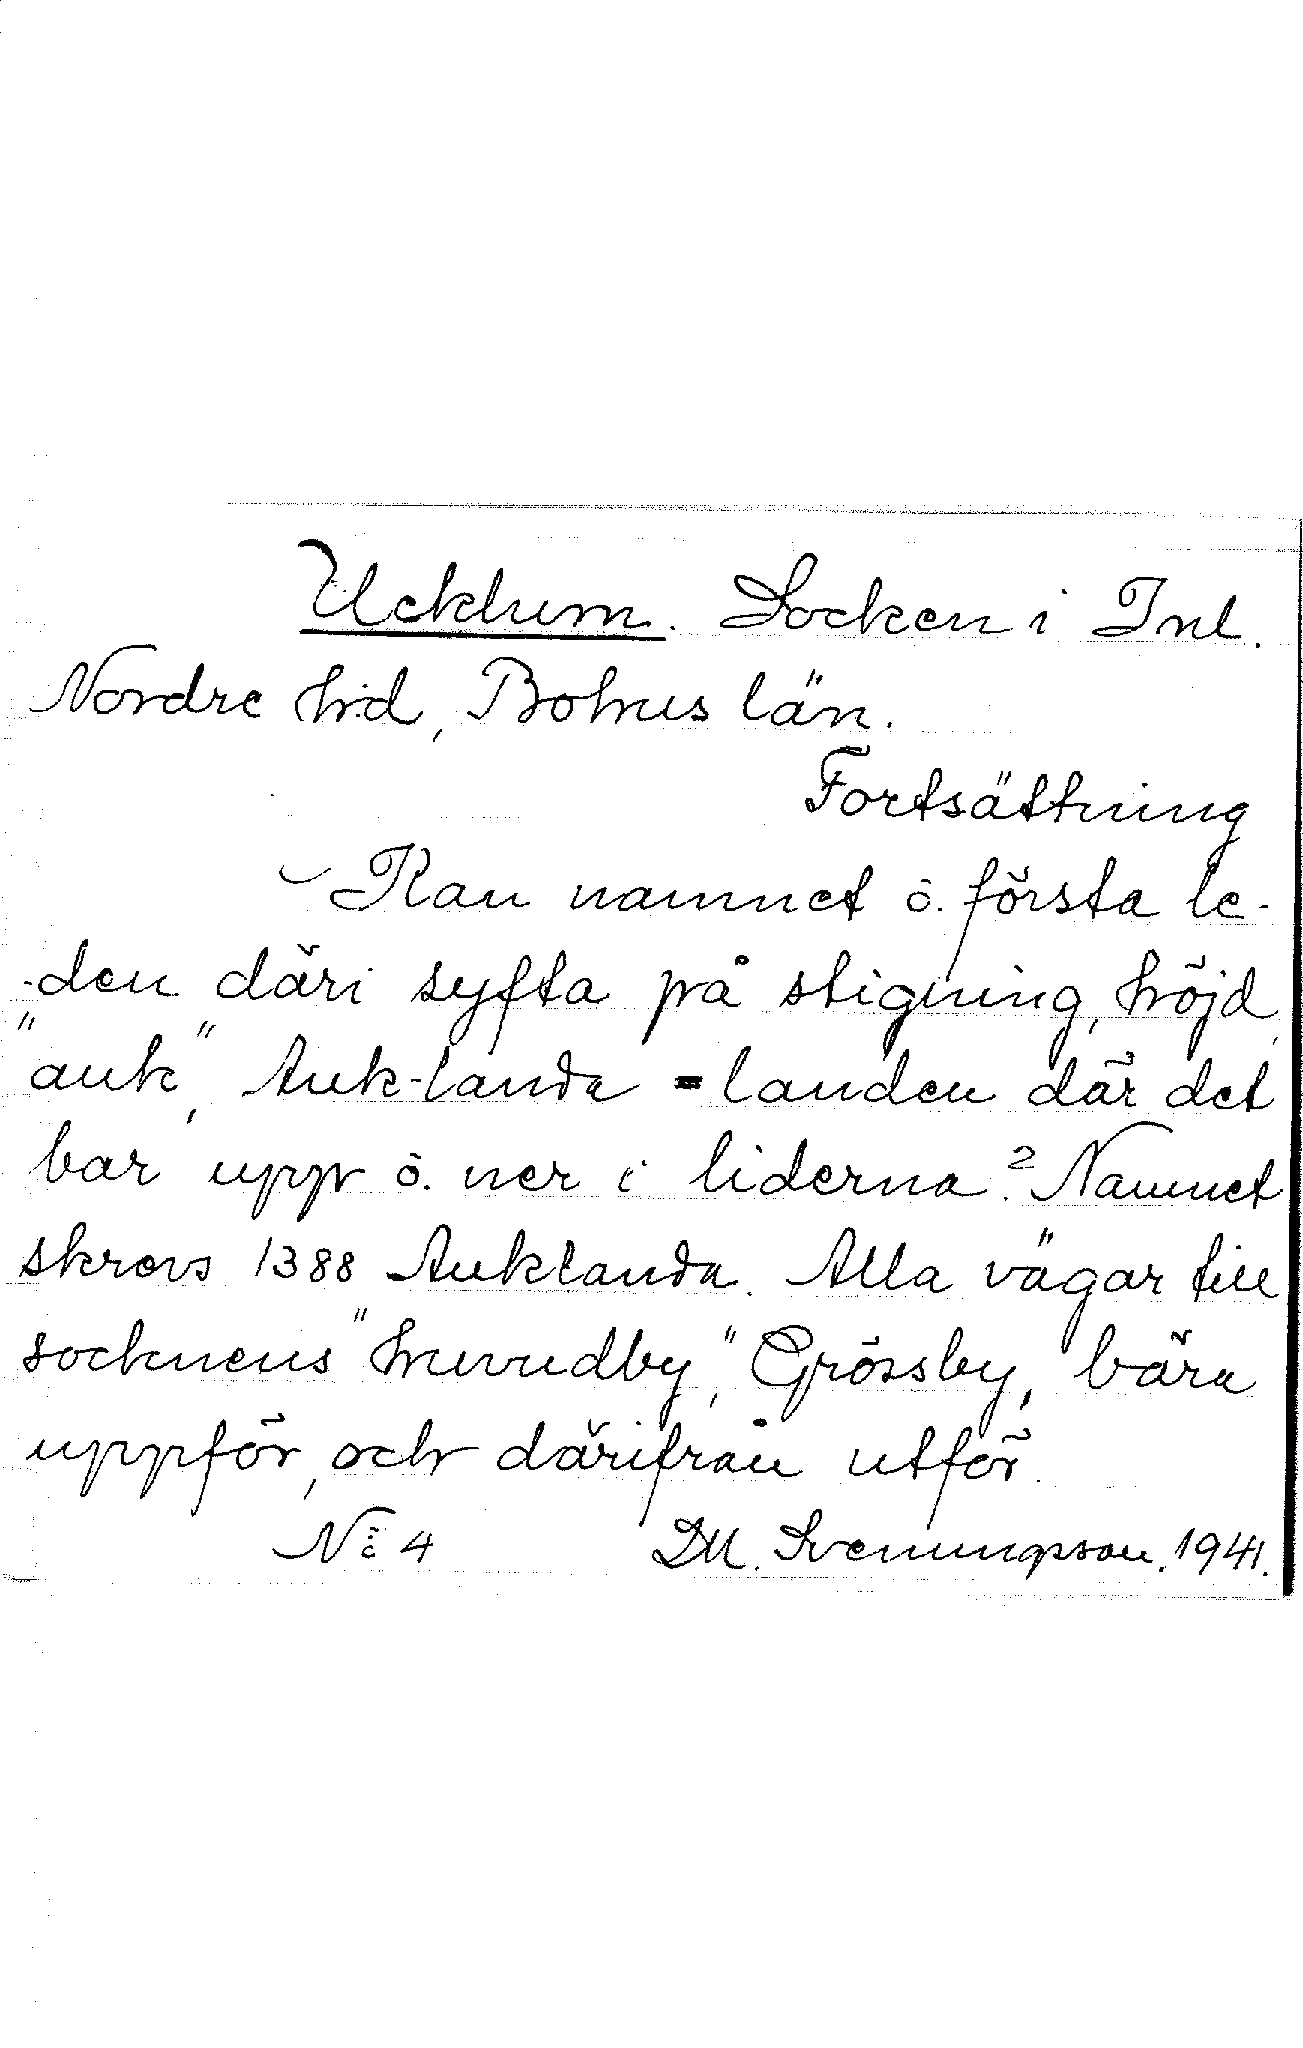 Ucklum. Socken i Inl.
Nordre h:d, Bohus län.
Fortsättning
Kan namnet o. första le-
-den däri syfta på stigning, höjd,
"auk", Auk-landa = landen där det
bar upp o. ner i liderna? Namnet
skrevs 1388 Auklanda. Alla vägar till
socknens "huvudby", Grössby, bära
uppför, och därifrån utför.
No 4 DM. Svenungsson. 1941.